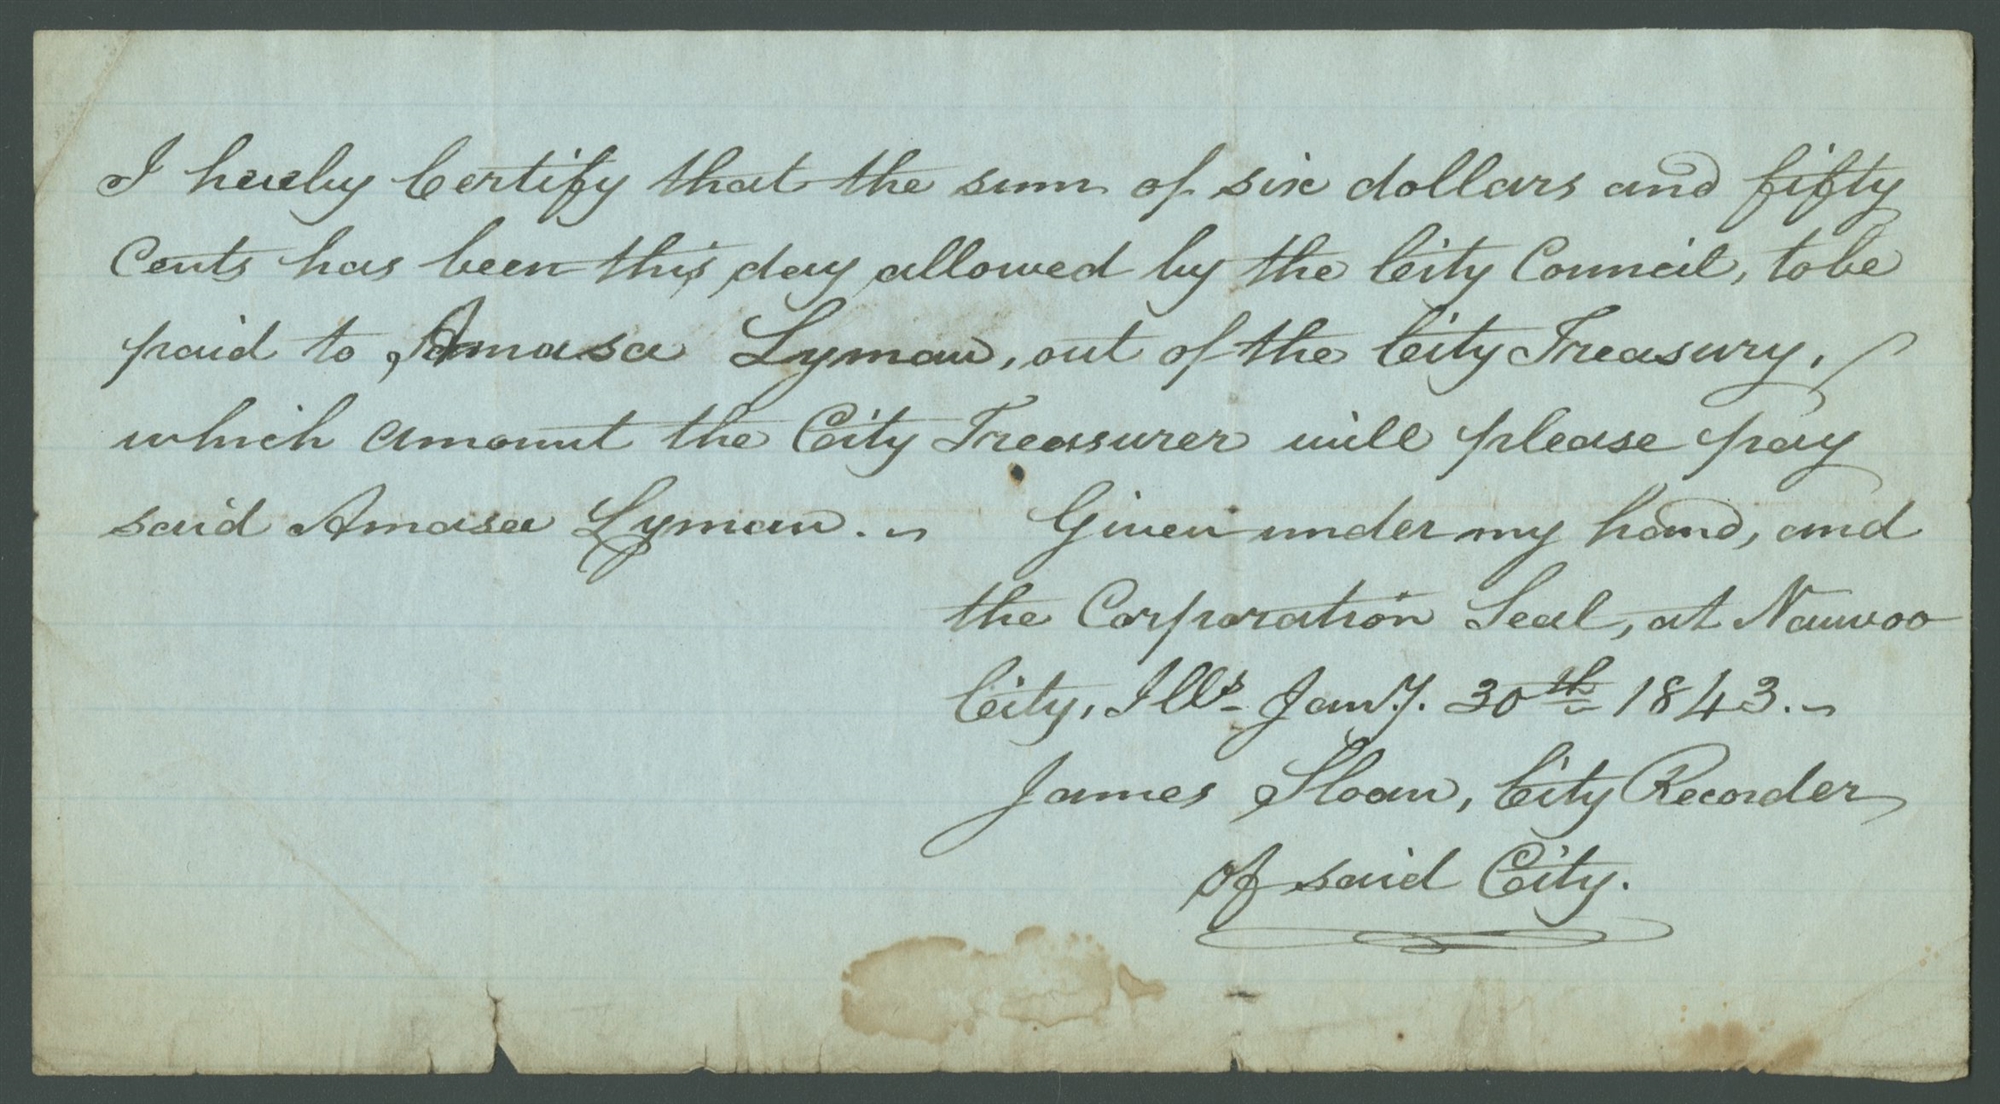 I hereby Certify that the sum of six dollars and fifty
Cents has been this day allowed by the City Council, to be
paid to Amasa Lyman, out of the City Treasury,
which amount the City Treasurer will please pay
said Amasa Lyman. ~ Given under my hand, and
the Corporation Seal, at Nauvoo
City, Ills. Jany. 30th 1843. ~
James Sloan, City Recorder
of said City.